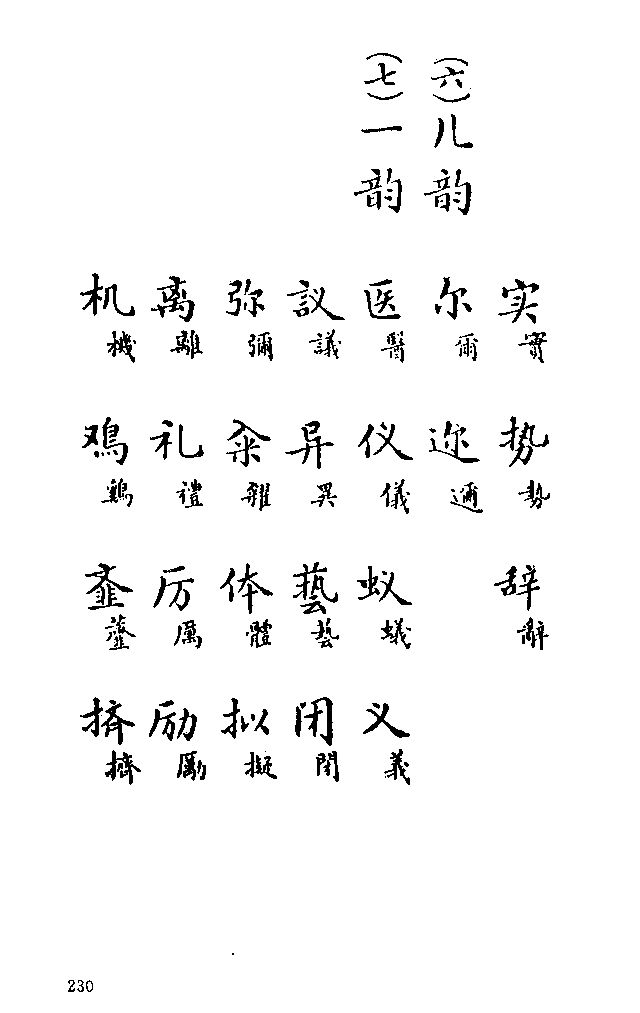 实實 势勢 辞辭
(六)儿韵 尔爾 迩邇
(七)一韵 医醫 仪儀 蚁蟻 义義
议議 异異 藝藝 闭閉
弥彌 籴糴 体體 拟擬
离離 礼禮 厉厲 励勵
机機 鸡鷄 齑虀 挤擠
230